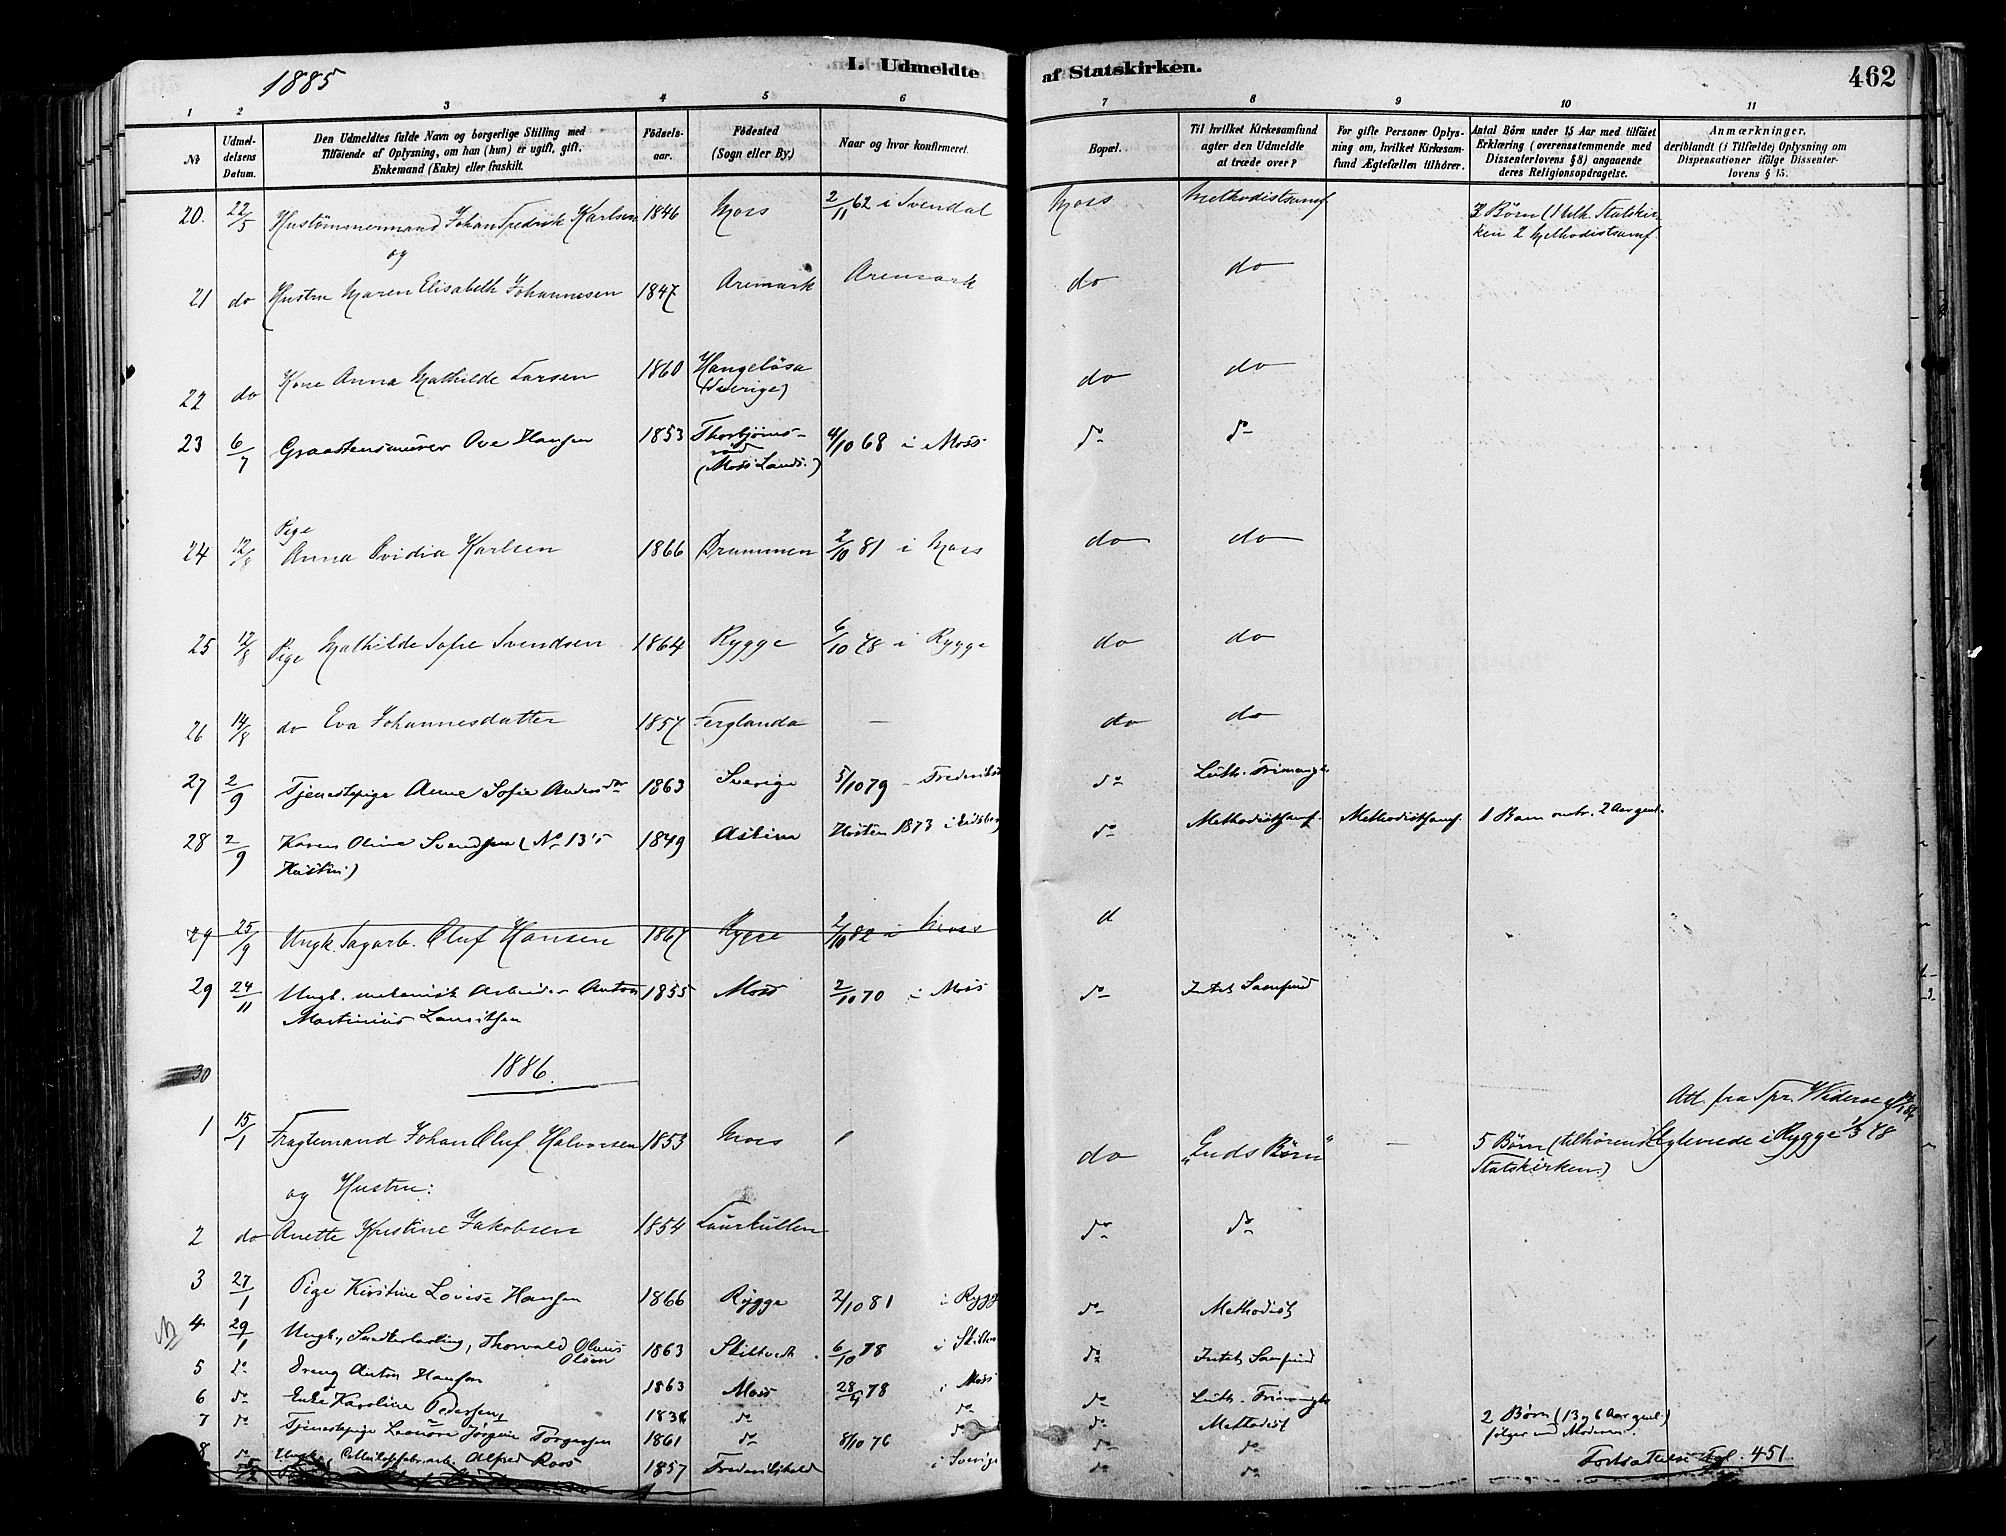 1885
I. Udmeldte af Statskirken.
462
1 2 3 4 5 6 7 8 9 10 11
№
Udmel-
delsens
Datum.
Den Udmeldtes fulde Navn og borgerlige Stilling med
Tilføiende af Oplysning, om han (hun) er ugift, gift,
Enkemand (Enke) eller fraskilt.
Fødsels-
aar.
Fødested
(Sogn eller By.)
Naar og hvor konfirmeret.
Bopæl.
Til hvilket Kirkesamfund
agter den Udmeldte
at træde over?
For gifte Personer Oplys-
ning om, hvilket Kirkesam-
fund Ægtefællen tilhører.
Antal Børn under 15 Aar med tilføiet
Erklæring (overensstemmende med
Dissenterloven § 8) angaaende
deres Religionsopdragelse.
Anmærkninger,
deriblandt (i Tilfælde) Oplysning om
Dispensationer ifølge Dissenter-
lovens § 15.
20. 22/5 Hustømmermand Johan Fredrik Karlsen 1846 Moss 2/11 62 i Svendal Moss Methodistsamf. 3 Børn (1 tilh. Statskir-
og ken 2 Methodistsamf.
21 do Hustru Maren Elisabeth Johannesen 1847 Aremark Aremark do do
22 do Kone Anna Mathilde Larsen 1860 Hangelösa do do
(Sverige)
23 6/7 Graastensmurer Ove Hansen 1853 Thorbjørns- 4/10 68 i Moss do do
rød
(Moss Lands.)
Pige
24 12/8 Anna Ovidia Karlsen 1866 Drammen 2/10 81 i Moss do do
25 12/8 Pige Mathilde Sofie Svendsen 1864 Rygge 6/10 78 i Rygge do do
26 14/8 do Eva Johannesdatter 1857 Ferglanda — do do
27 2/9 Tjenestepige Anne Sofie Andersdtr 1863 Sverige 5/10 79 - do Luth. Frimenigh.
28 2/9 Karen Oline Svendsen (No 13's 1849 Askim Høsten 1873 i do Methodistsamf. Methodistsamf. 1 Barn 2 Aar gml.
Hustru)
29 25/9 Ungk. Sagarb. Oluf Hansen 1867 Rygge 2/10 82 i Moss d
29 24/11 Ungk. mekanisk Arbeider Anton 1855 Moss 2/10 70 i Moss do Intet Samfund
Martinius Lauritsen
30 1886.
Att. fra Spr. Widerøe
1 15/1 Fragtemand Johan Oluf Halvorsen 1853 Moss do "Guds Børn" — 5 Børn (tilhørende Ægteviede i Rygge 1/3 78
og Hustru: Statskirken.)
2 do Anette Kristine Jakobsen 1854 do do
3 27/1 Pige Kirstine Lovise Hansen 1866 Rygge 2/10 81 i Rygge do Methodist
4 29/1 Ungk., Thorvald Olaus 1863 Skiltvedt 6/10 78 i do Intet Samfund
Olsen
5 do Dreng Anton Hansen 1863 Moss 28/4 78 i Moss do Luth. Frimenigh.
6 do Enke Karoline Pedersen 1836 do do do Methodist 2 Børn (13 og 6 Aar gml.)
følger med Moderen.
7 do Tjenestepige Leonore Jørgine Torgersen 1861 do 8/10 76 do do do
8 do Ungk., Alfred Roos 1857 Frederikshald i Sverige do do
Fortsættelse Fol. 451.